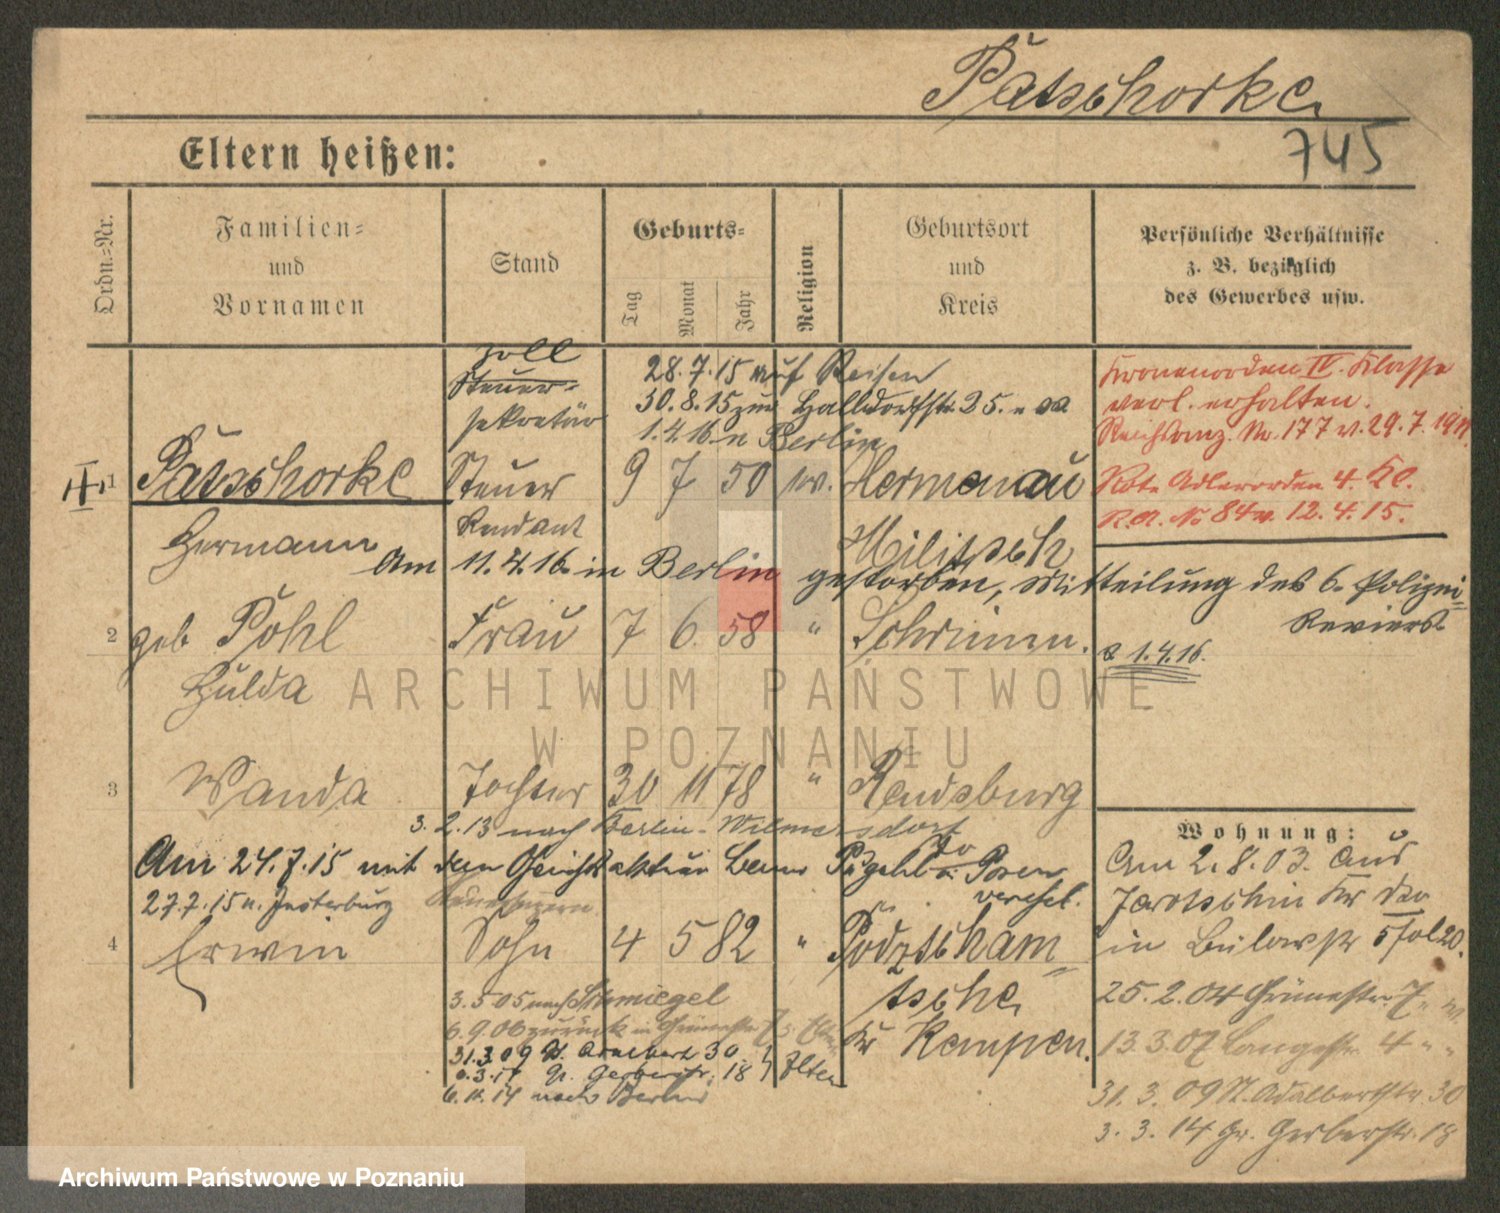 Patschorke.
745
Eltern heißen:
Ordn.-Nr.
Familien-
und
Vornamen
Stand
Geburts-
Tag
Monat
Jahr
Religion
Geburtsort
und
Kreis
Persönliche Verhältnisse
z. B. bezüglich
des Gewerbes usw.
Zoll
Steuer-
sekretär
28.7.15 auf Reisen
30.8.15 zur
25.
1.4.16 n Berlin
Kronenorden IV. Klasse
verl. erhalten.
Reichsanz. Nr. 177 v. 29.7.
1 Patschorke Steuer 9 7 50 ev. Hermenau
Rote Adlerorden 4. Kl.
R.A. No 84 v. 12.4.15.
Hermann Rendant Militsch
Am 11.4.16 in Berlin gestorben, Mitteilung des 6. Polizei-
Reviers
v 1.4.16.
2 geb Pohl Frau 7 6. 58 " Schrimm.
Hulda
ARCHIWUM PAŃSTWOWE
W POZNANIU
3 Wanda Tochter 30 11 78 " Rendsburg
3.2.13 nach Berlin-Wilmersdorf
Am 24.7.15 mit dem
Posen
verehel.
27.7.15 n. Insterburg
4 Erwin Sohn 4 5 82 " Podztscham-
tsche,
Kr Kempen.
3.5 05 nach Schmiegel
6.9.06 zurück in Grünestr. 7
31.3.09 N. Adalbert 30
Gr. Gerberstr. 18 Eltern
nach Berlin
Wohnung:
Am 2.8.03. aus
Jarotschin Kr
in Bülowstr 5
25.2.04 Grünestr. 7
13.3.07 Langestr 4 " "
31.3.09 N. Adalbertstr 30
3.3.14 Gr. Gerberstr. 18
Archiwum Państwowe w Poznaniu